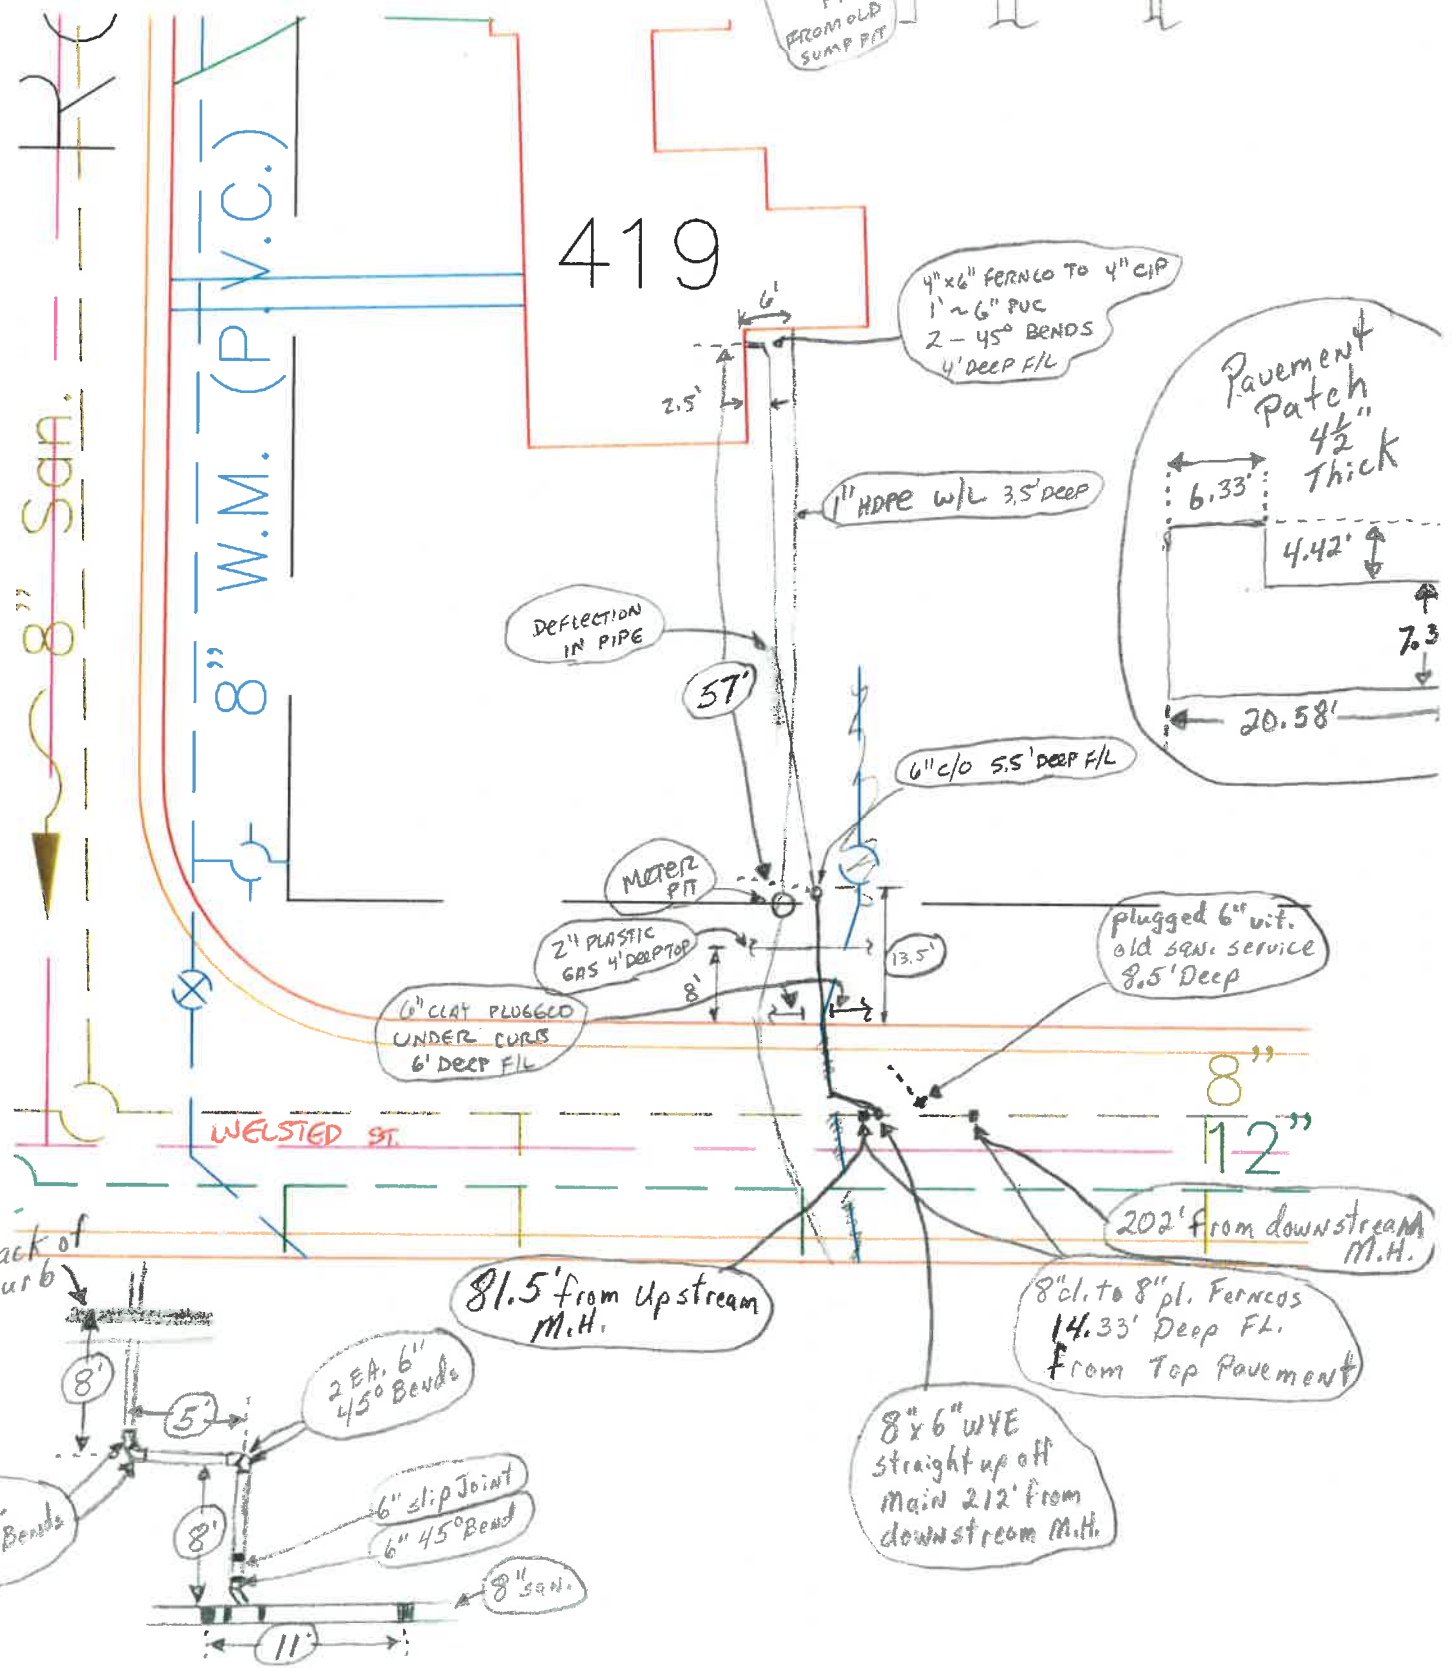 FROM OLD
SUMP PIT
8" San.
8" W.M. (P.V.C.)
419
6'
4"x6" FERNCO TO 4" CIP
1' ~ 6" PVC
2 - 45° BENDS
4' DEEP F/L
2.5'
Pavement
Patch
4½"
Thick
6.33'
4.42'
7.3
20.58'
1" HDPE W/L 3.5' DEEP
DEFLECTION
IN PIPE
57'
6" C/O 5.5' DEEP F/L
METER
PIT
2" PLASTIC
GAS 4' DEEP TOP
8'
13.5'
plugged 6" vit.
old san. service
8.5' Deep
6" CLAY PLUGGED
UNDER CURB
6' DEEP F/L
8"
12"
WELSTED ST.
202' from downstream
M.H.
81.5' from Upstream
M.H.
8" cl. to 8" pl. Ferncos
14.33' Deep FL.
from Top Pavement
8"x6" WYE
straight up off
Main 212' from
downstream M.H.
ack of
urb
8'
5'
2 EA. 6"
45° Bends
Bends
8'
6" slip Joint
6" 45° Bend
8" san.
11'